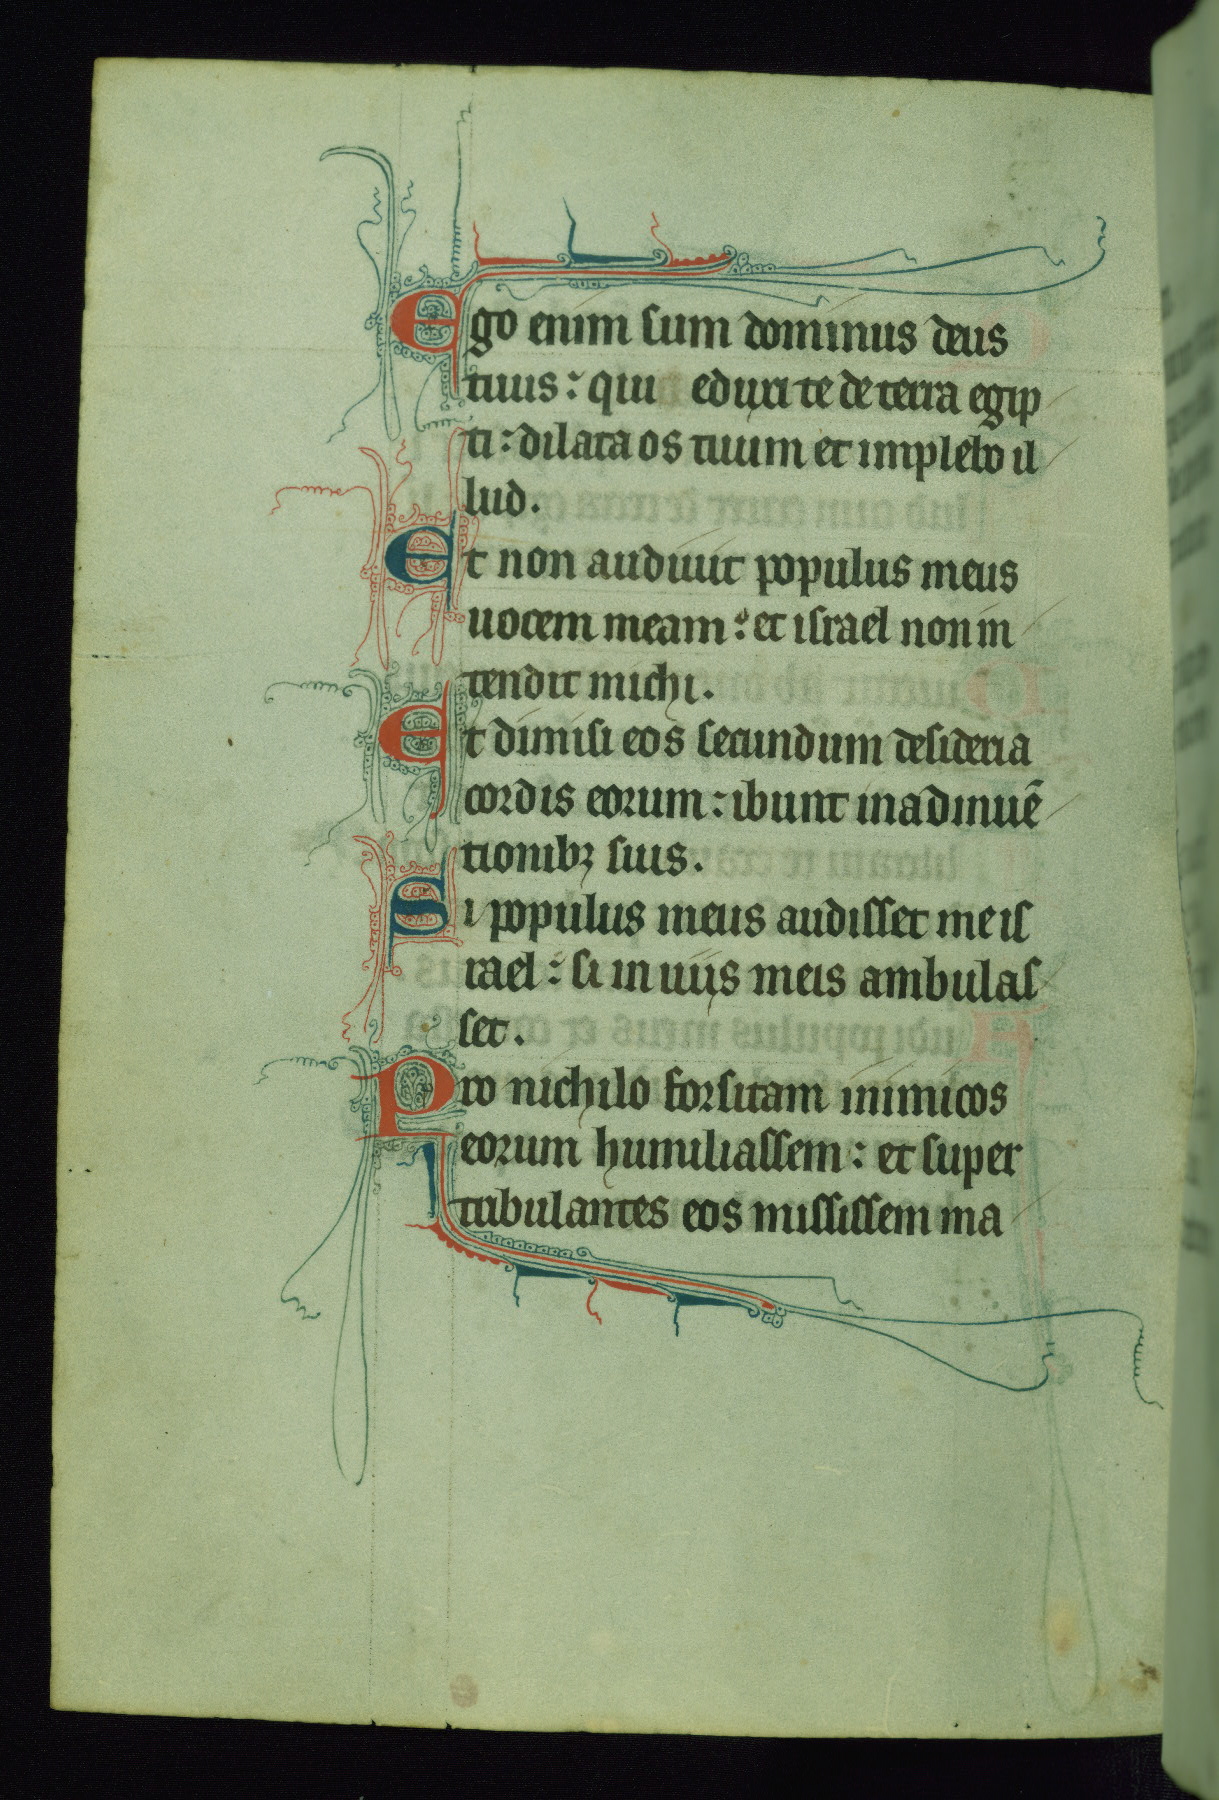 Ego enim sum dominus deus
tuus : qui eduxi te de terra egip
ti : dilata os tuum et implebo il
lud .
Et non audiuit populus meus
uocem meam : et israel non in
tendit michi .
Et dimisi eos secundum desideria
cordis eorum : ibunt in adinuē
tionibꝫ suis .
Si populus meus audisset me is
rael : si in uiis meis ambulas
set .
Pro nichilo forsitam inimicos
eorum humiliassem : et super
tribulantes eos misissem ma